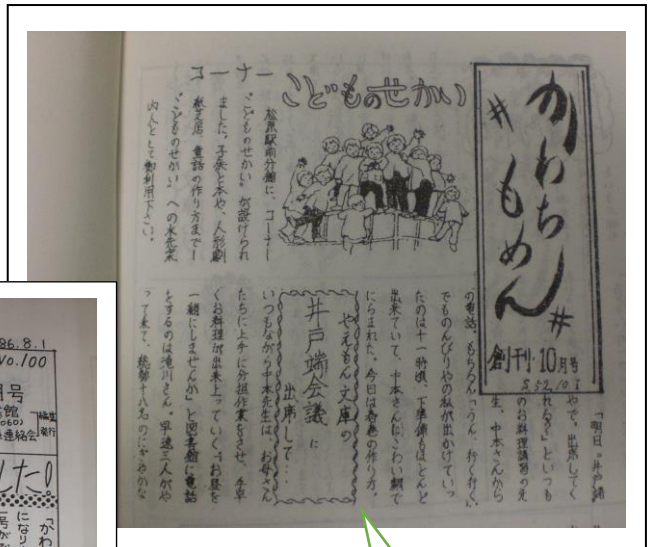 かわちもめん
創刊・10月号
S.52.10.1
こどものせかい
コーナー
松原駅前分館に、コーナー
"こどものせかい"が設けられ
ました。子供と本や、人形劇
紙芝居、童話の作り方まで―
"こどものせかい"への水先案
内人として御利用下さい。
「明日、井戸端
やで。出席してく
といつも
のお料理講習の先
生、中本さんから
の電話。もちろん「うん、行く行く。」
でものんびりやの私が出かけていっ
たのは十一時頃、下準備もほとんど
出来ていて、中本さんにこわい顔で
にらまれた。今日は春巻の作り方。
やえもん文庫の
井戸端会議に
出席して…
いつもながら中本先生は、お母さん
たちに上手に分担作業をさせ、手早
くお料理が出来上っていく。「お昼を
一緒にしませんか」と図書館に電話
をするのは滝川さん。早速三人がや
って来て、総勢十八名のにぎやかな
86.8.1
No.100
月号
館
連絡会
編集
発行
した!
「かわ
になり
号が